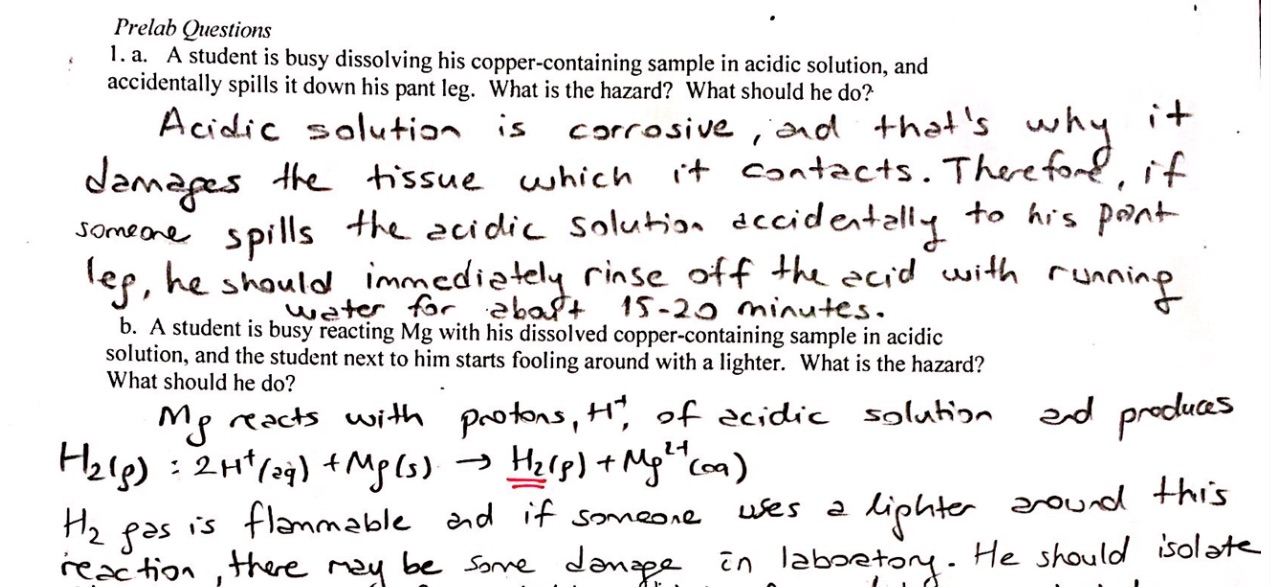 Prelab Questions
1. a. A student is busy dissolving his copper-containing sample in acidic solution, and
accidentally spills it down his pant leg. What is the hazard? What should he do?
Acidic solution is corrosive, and that's why it
damages the tissue which it contacts. Therefore, if
someone spills the acidic solution accidentally to his pant
leg, he should immediately rinse off the acid with running
water for about 15-20 minutes.
b. A student is busy reacting Mg with his dissolved copper-containing sample in acidic
solution, and the student next to him starts fooling around with a lighter. What is the hazard?
What should he do?
Mg reacts with protons, H⁺, of acidic solution and produces
H₂(g) : 2H⁺(aq) + Mg(s) → H₂(g) + Mg²⁺(aq)
H₂ gas is flammable and if someone uses a lighter around this
reaction, there may be some damage in laboratory. He should isolate